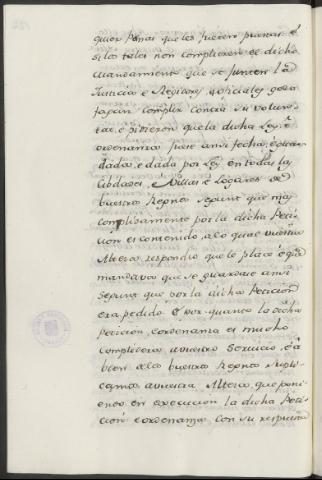 quier Penas que les fueren puestas é
si la tales non complieren el dicho
mandamiento que se junten la
Justicia e Regidores e oficiales e lo
fagan complir contra su volun
tat, é pidieron que la dicha Ley, é
ordenanza fuese ansi fecha, é guar
dada, e dada por Ley en todas las
Cibdades, é Villas e Logares de
vuestros Regnos segunt que mas
complidamente por la dicha Peti
cion es contenido, a lo qual vuestra
Alteza respondió que le placia é que
mandava que se guardase ansi
segunt que por la dicha Peticion
era pedido. E por quanto la dicha
Peticion, e ordenanza es mucho
complidera a vuestro Servicio, é á
bien de los vuestros Regnos Supli
camos a vuestra Alteza, que ponien
endo en execucion la dicha Peti
cion é ordenanza, con su respuesta